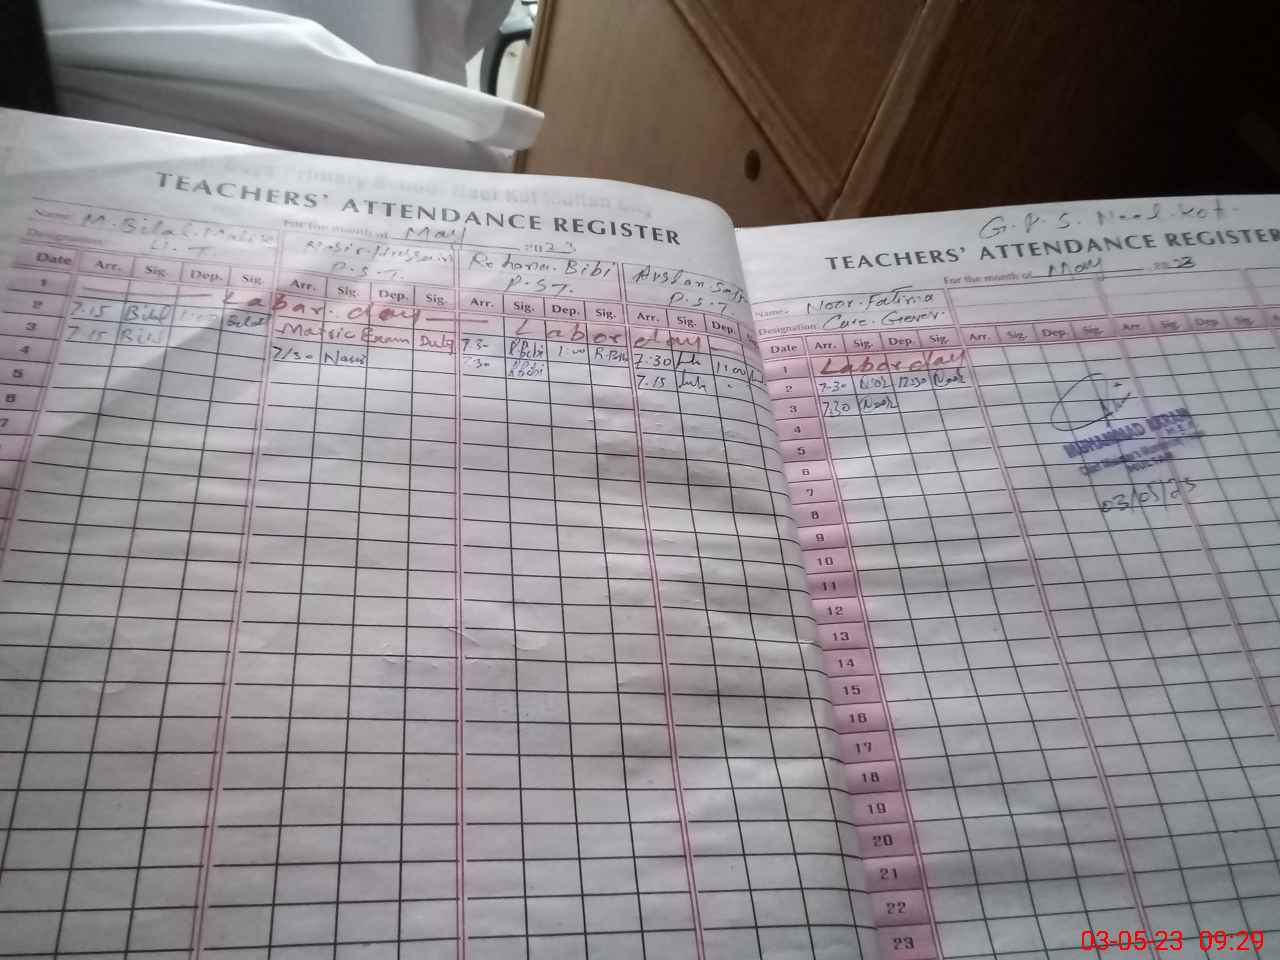 TEACHERS' ATTENDANCE REGISTER
Name: M. Bilal Malik For the month of May 2023
Designation:
Rehana Bibi
P.S.T. P.S.T. P.S.T.
Date Arr. Sig. Dep. Sig. Arr. Sig. Dep. Sig. Arr. Sig. Dep. Sig. Arr. Sig. Dep.
1 Labar day Labor day
2 7.15 Bilal 1:00 Bilal Matric Exam Duty 7.30 R.Bibi 1:00 R.Bibi 7:30 1:00
3 7.15 Bilal 7/30 Nasir 7.30 R.Bibi 7.15
4
5
6
7
G.P.S. Kot
TEACHERS' ATTENDANCE REGISTER
For the month of May 2023
Name: Noor Fatima
Designation: Care Gever
Date Arr. Sig. Dep. Sig. Arr. Sig. Dep. Sig. Arr. Sig. Dep. Sig.
1 Labor day
2 7-30 Noor 12:30 Noor
3 7.30 Noor
4
5
6
7
8
9
10
11
12
13
14
15
16
17
18
19
20
21
22
23
MUHAMMAD
03/05/23
03-05-23 09:29